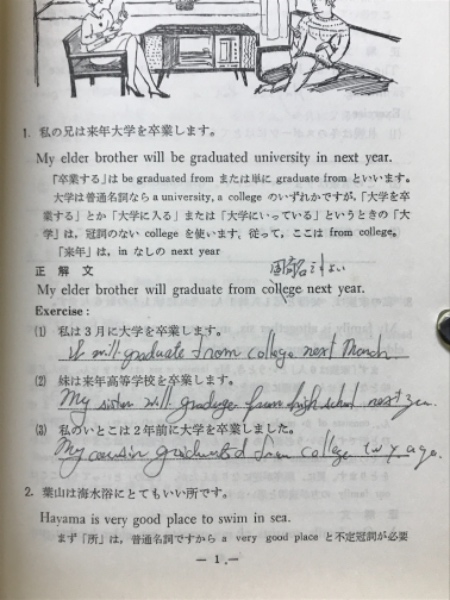 1. 私の兄は来年大学を卒業します。
My elder brother will be graduated university in next year.
「卒業する」は be graduated from または単に graduate from といいます。
大学は普通名詞なら a university, a college のいずれかですが,「大学を卒
業する」とか「大学に入る」または「大学にいっている」というときの「大
学」は, 冠詞のない college を使います, 従って, ここは from college。
「来年」は, in なしの next year
正 解 文
My elder brother will graduate from college next year.
Exercise :
(1) 私は3月に大学を卒業します。
I will graduate from college next March.
(2) 妹は来年高等学校を卒業します。
My sister will from high school next
(3) 私のいとこは2年前に大学を卒業しました。
My cousin graduated from college ago.
2. 葉山は海水浴にとてもいい所です。
Hayama is very good place to swim in sea.
まず「所」は, 普通名詞ですから a very good place と不定冠詞が必要
— 1 —